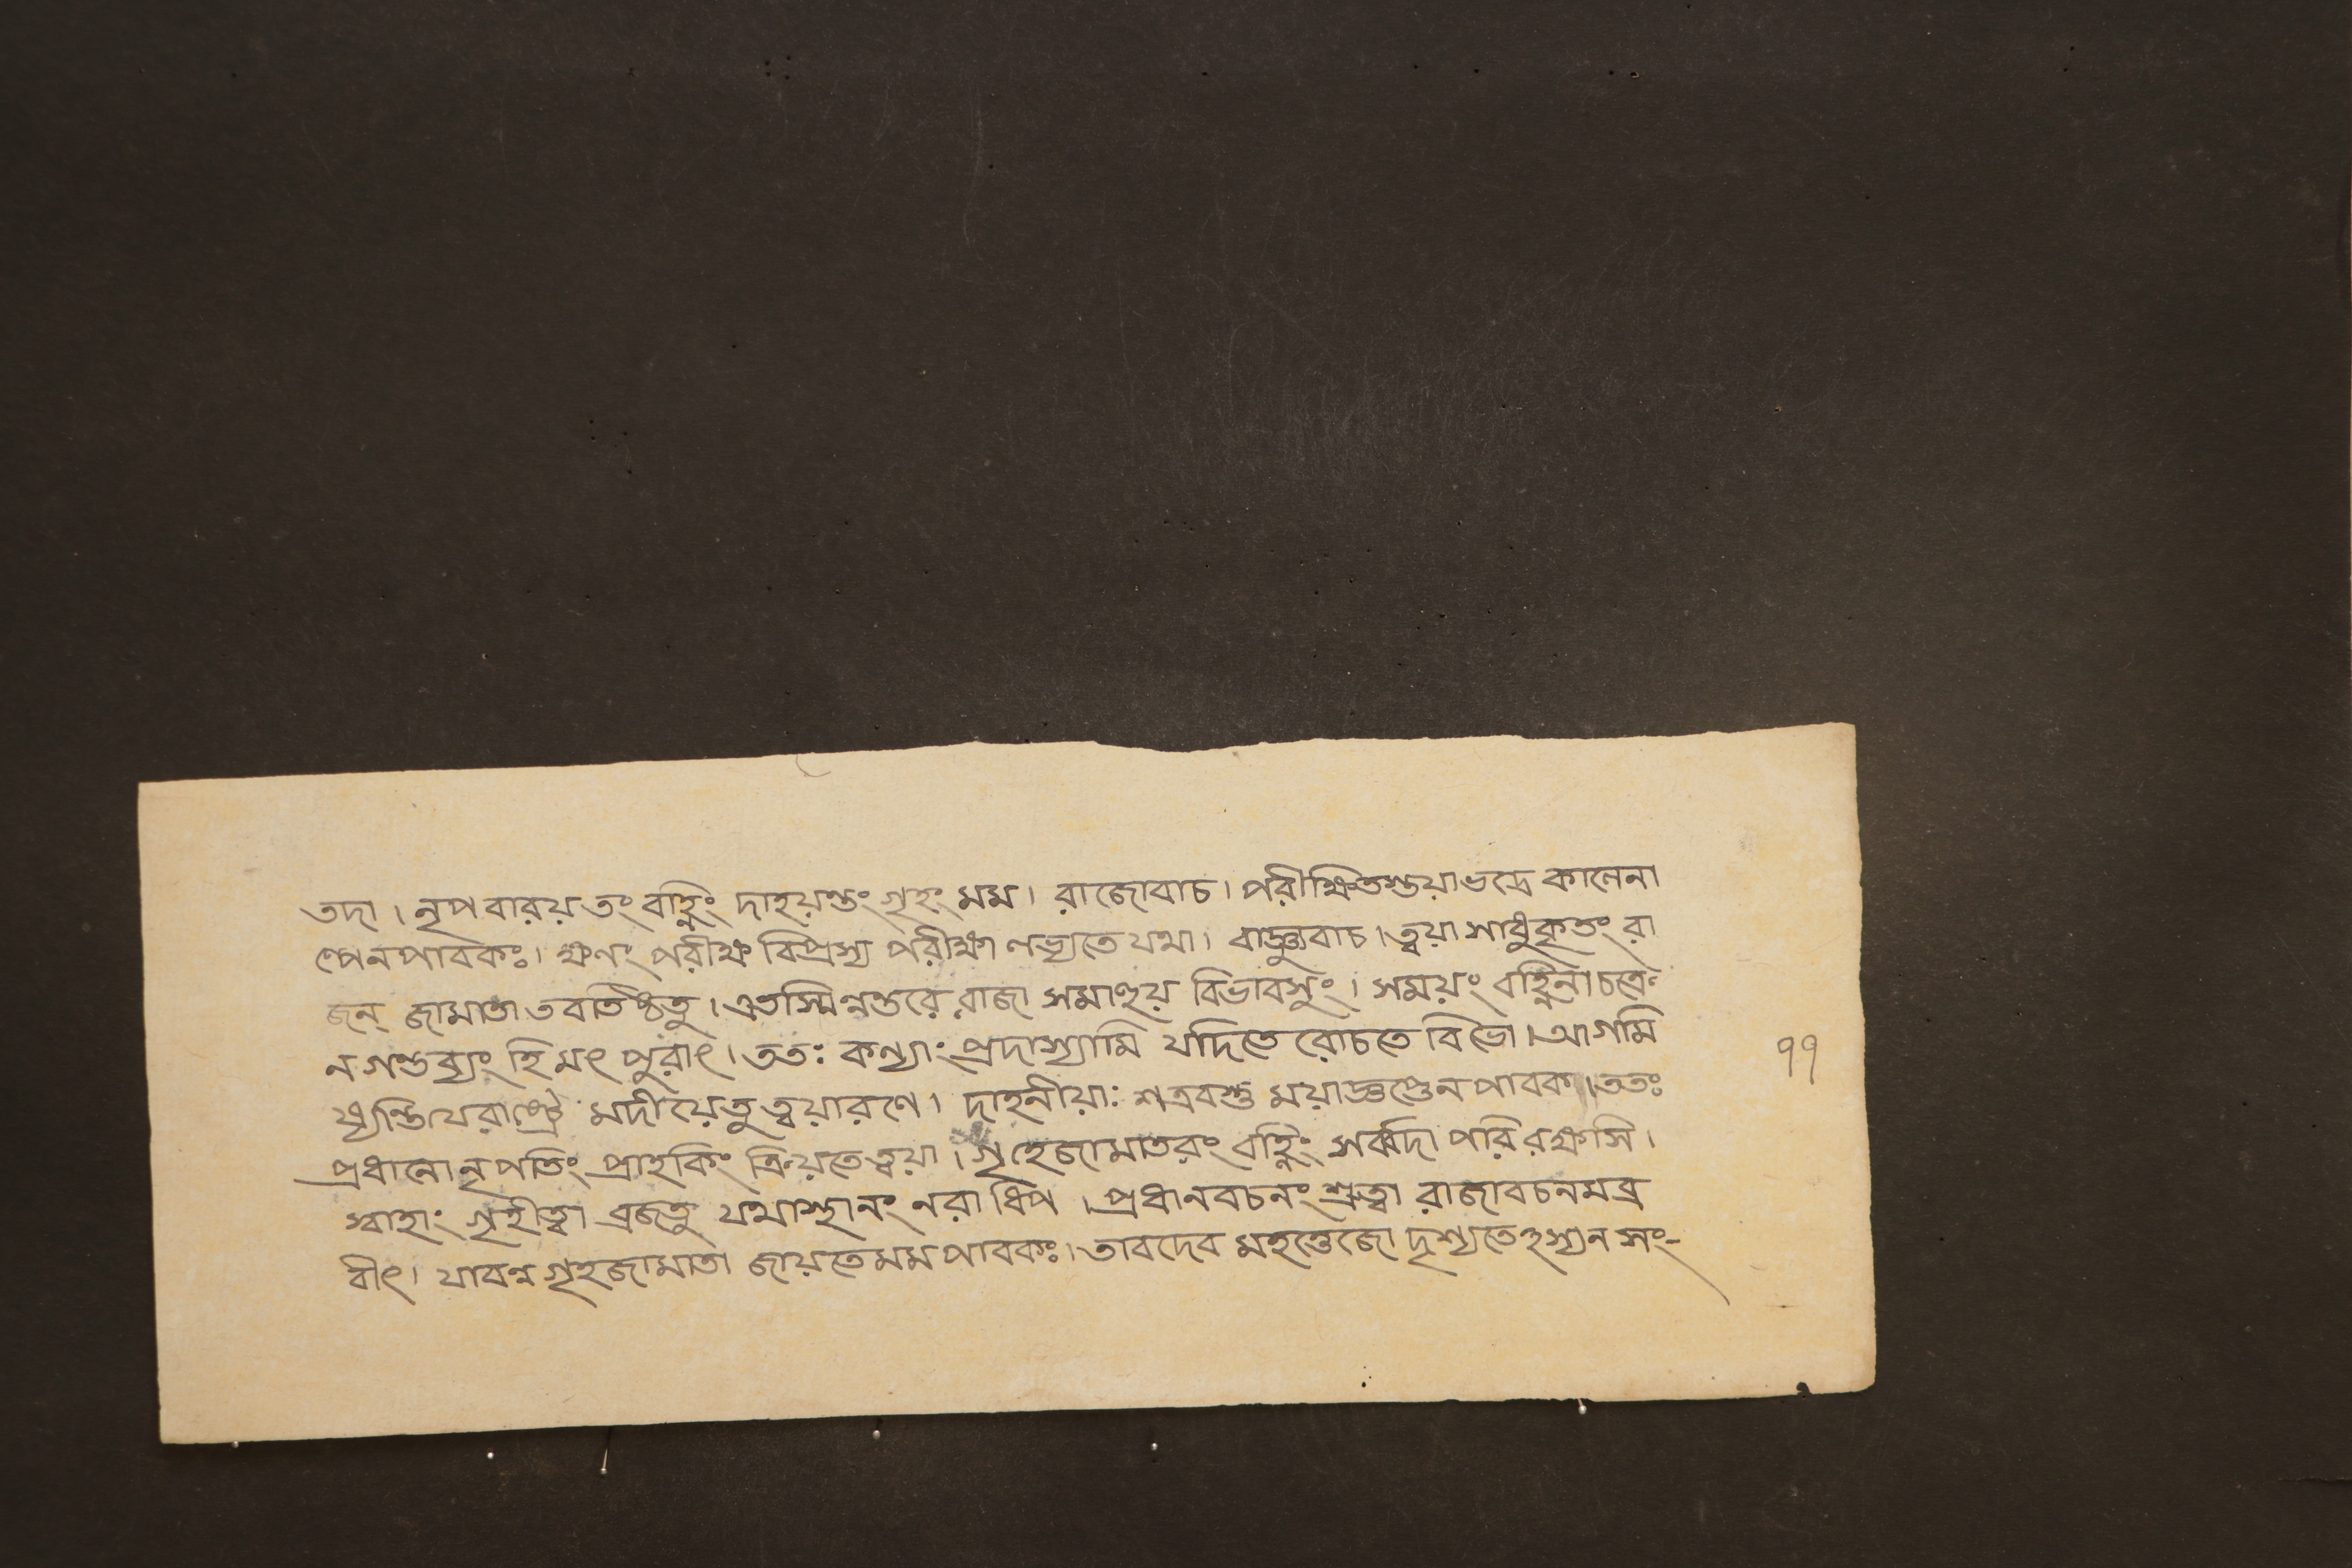 তদা। নৃপ বারয় তং বহ্নিং দাহয়ন্তং গৃহং মম। রাজোবাচ। পরীক্ষিতস্তয়াভদ্রে কালেনা
ল্পেনপাবকঃ। ক্ষণং পরীক্ষ বিপ্রস্য পরীক্ষা লভ্যতে যথা। রাজ্ঞ্যুবাচ। ত্বয়া সাধুকৃতং রা
জন্ জামাতা তবতিষ্ঠতু। এতস্মিন্নন্তরে রাজা সমাহূয় বিভাবসুং। সময়ং বহ্নিনা চক্রে
ন গন্তব্যং হি মৎ পুরাৎ। ততঃ কন্যাং প্রদাস্যামি যদিতে রোচতে বিভো। আগমি
ষ্যন্তি যেরাষ্ট্রে মদীয়েতু ত্বয়ারণে। দাহনীয়াঃ শত্রবস্তু ময়াজ্ঞপ্তেন পাবক। ততঃ
প্রধানো নৃপতিং প্রাহকিং ক্রিয়তে ত্বয়া। গৃহেজামাতরং বহ্নিং সর্ব্বদা পরি রক্ষসি।
স্বাহাং গৃহীত্বা ব্রজতু যথাস্থানং নরাধিপ। প্রধানবচনং শ্রুত্বা রাজাবচনমব্র
বীৎ। যাবন্ন গৃহজামাতা জায়তে মম পাবকঃ। তাবদেব মহত্তেজো দৃশ্যতেঽস্য ন সং-
৭৭